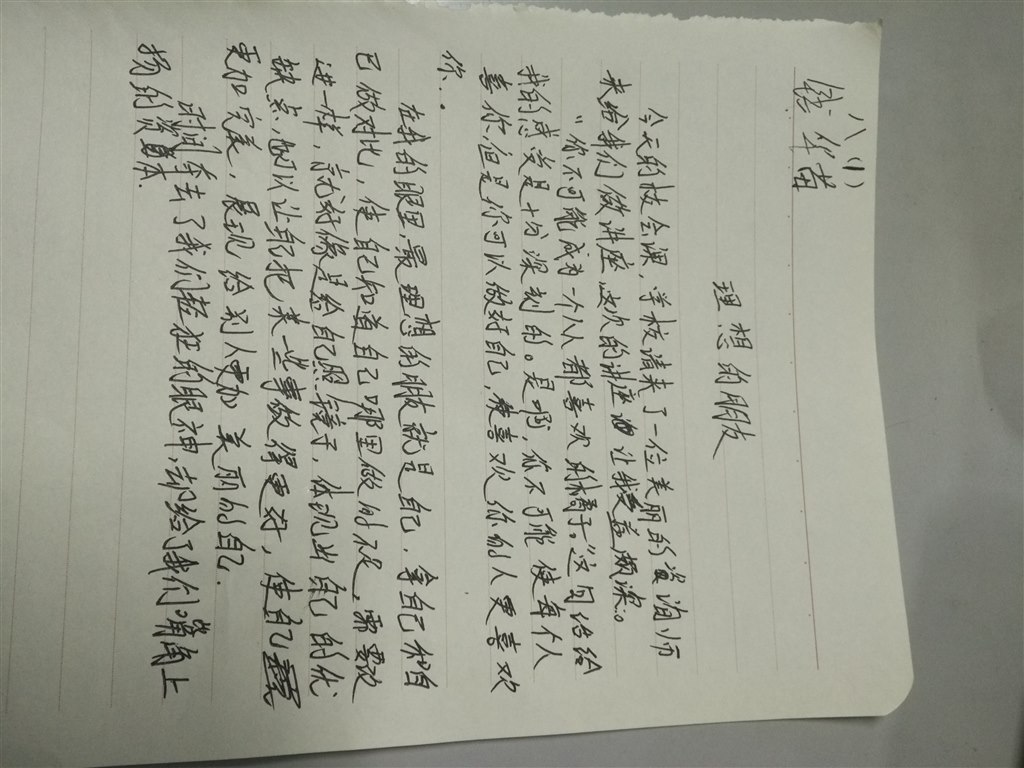 八(1)
钱华苗
理想的朋友
今天的校会课,学校请来了一位美丽的资询师
来给我们做讲座,这次的讲座让我受益颇深。
“你不可能成为一个人人都喜欢的橘子。”这句话给
我的感觉是十切深刻的。是啊,你不可能使每个人
喜你,但是你可以做好自己,使喜欢你的人更喜欢
你..
在我的眼里最理想的朋友就是自己,拿自己和自
己做对比,使自己知道自己哪里做的不足,需要改
进一样,就好像是给自己照镜子,体现出自己的优
缺点,假以让自己把某一些事做得更好,使自己
更加完美,展现给别人更加美丽的自己.
时间牵去了我们轻狂的眼神,却给了我们嘴角上
扬的资本.